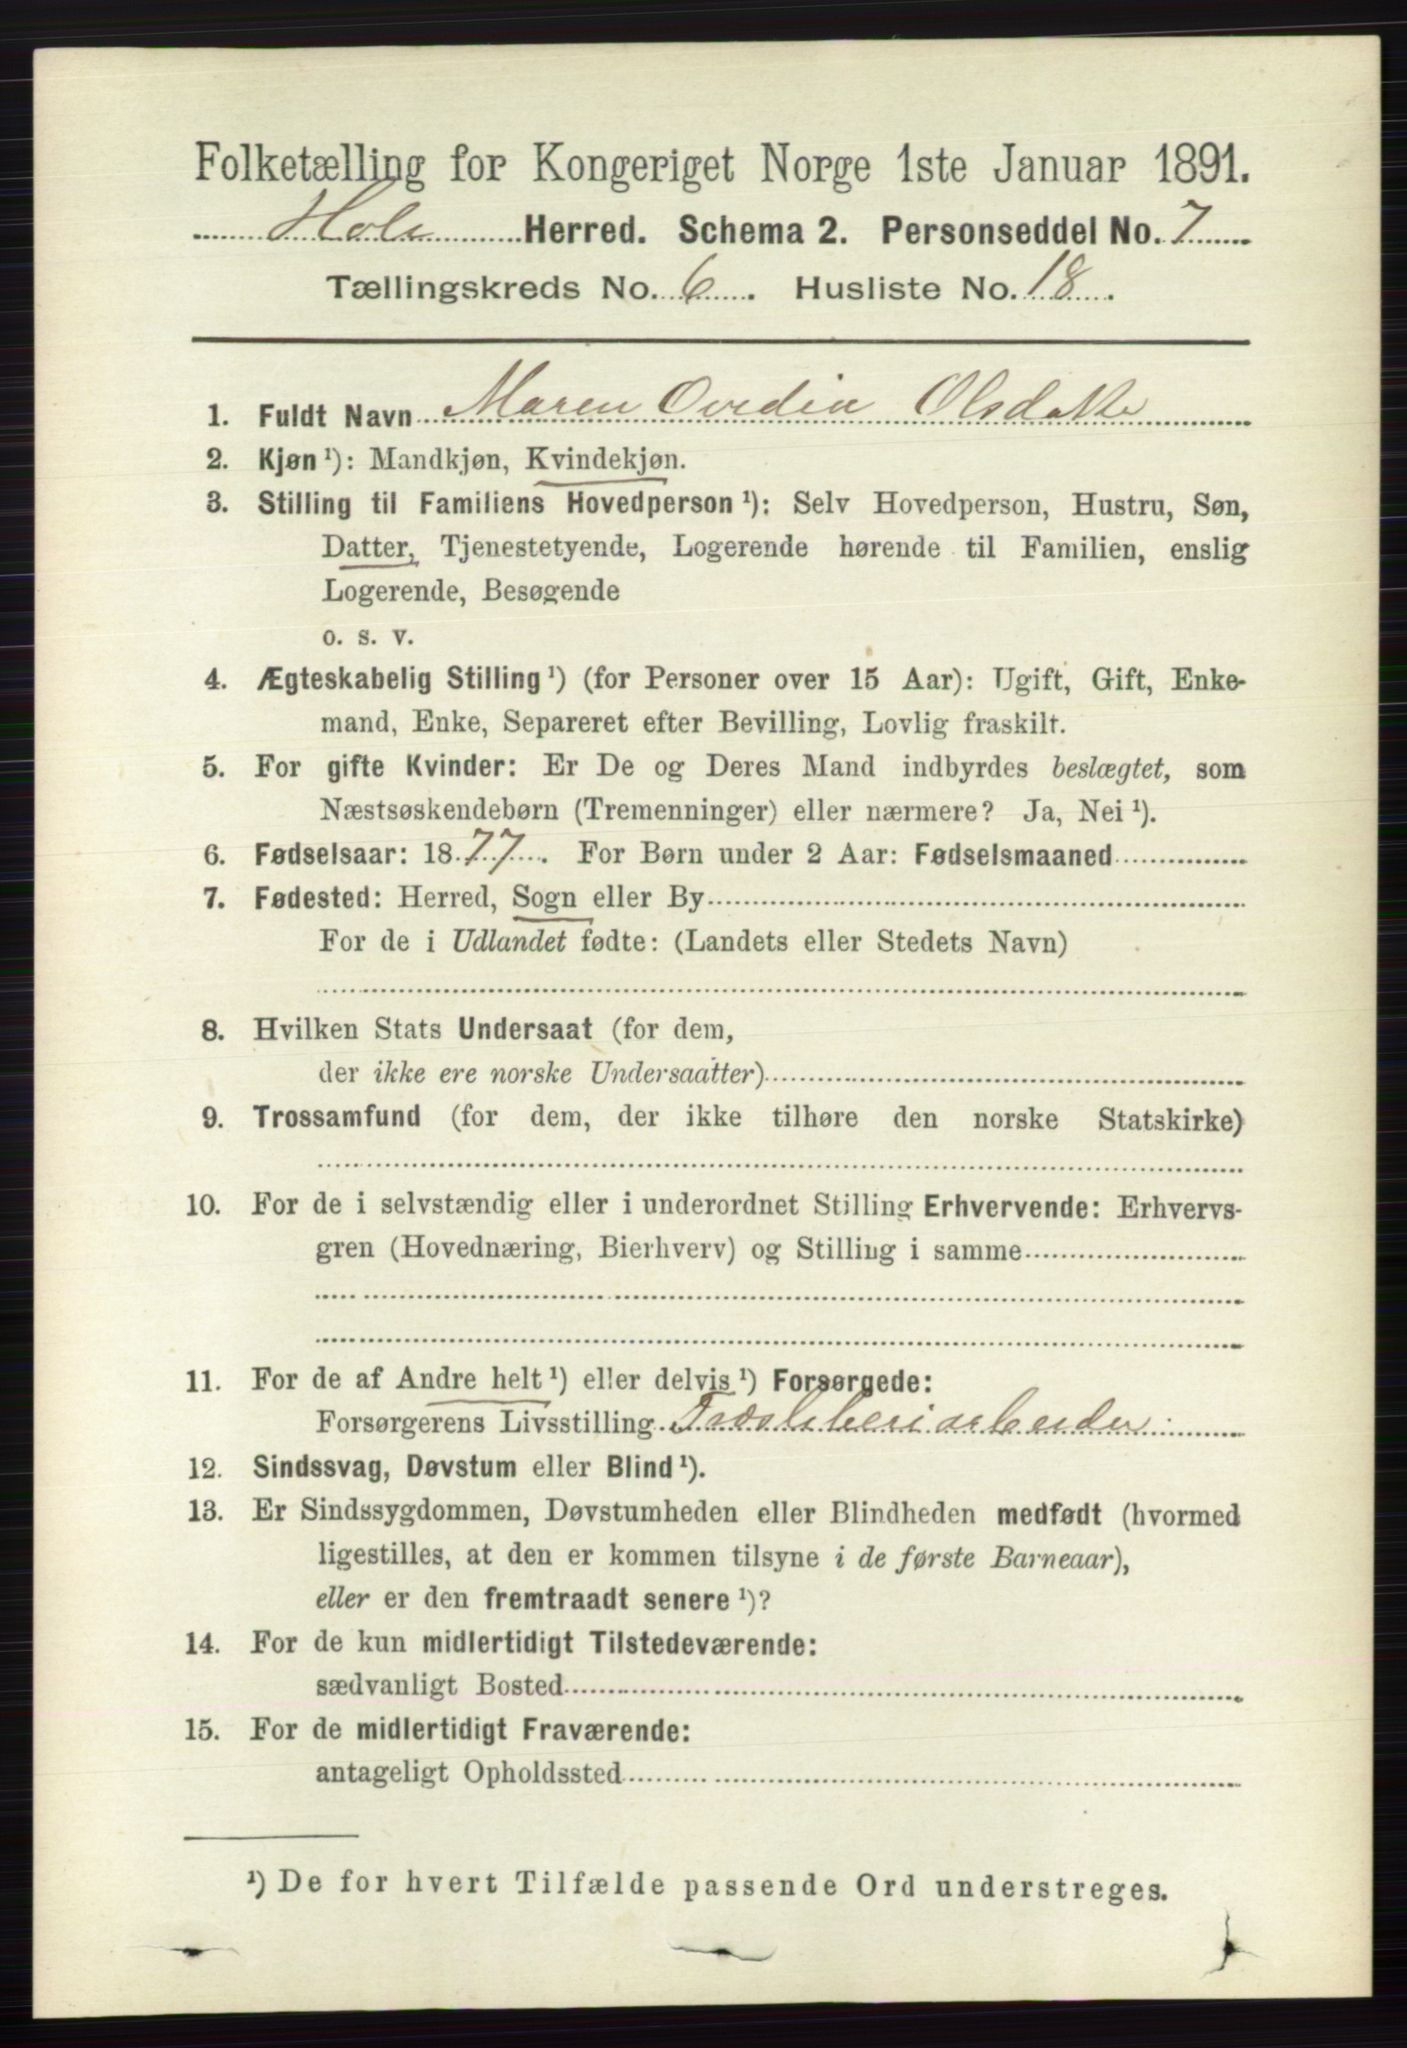 Folketælling for Kongeriget Norge 1ste Januar 1891.
Hole Herred. Schema 2. Personseddel No. 7
Tællingskreds No. 6. Husliste No. 18.
1. Fuldt Navn Maren Ovedia Olsdatter
2. Kjøn ¹): Mandkjøn, Kvindekjøn.
3. Stilling til Familiens Hovedperson ¹): Selv Hovedperson, Hustru, Søn,
Datter, Tjenestetyende, Logerende hørende til Familien, enslig
Logerende, Besøgende
o. s. v.
4. Ægteskabelig Stilling ¹) (for Personer over 15 Aar): Ugift, Gift, Enke-
mand, Enke, Separeret efter Bevilling, Lovlig fraskilt.
5. For gifte Kvinder: Er De og Deres Mand indbyrdes beslægtet, som
Næstsøskendebørn (Tremenninger) eller nærmere? Ja, Nei ¹).
6. Fødselsaar: 1877. For Børn under 2 Aar: Fødselsmaaned
7. Fødested: Herred, Sogn eller By
For de i Udlandet fødte: (Landets eller Stedets Navn)
8. Hvilken Stats Undersaat (for dem,
der ikke ere norske Undersaatter)
9. Trossamfund (for dem, der ikke tilhøre den norske Statskirke)
10. For de i selvstændig eller i underordnet Stilling Erhvervende: Erhvervs-
gren (Hovednæring, Bierhverv) og Stilling i samme
11. For de af Andre helt ¹) eller delvis ¹) Forsørgede:
Forsørgerens Livsstilling Træsliberiarbeider
12. Sindssvag, Døvstum eller Blind ¹).
13. Er Sindssygdommen, Døvstumheden eller Blindheden medfødt (hvormed
ligestilles, at den er kommen tilsyne i de første Barneaar),
eller er den fremtraadt senere ¹)?
14. For de kun midlertidigt Tilstedeværende:
sædvanligt Bosted
15. For de midlertidigt Fraværende:
antageligt Opholdssted
¹) De for hvert Tilfælde passende Ord understreges.